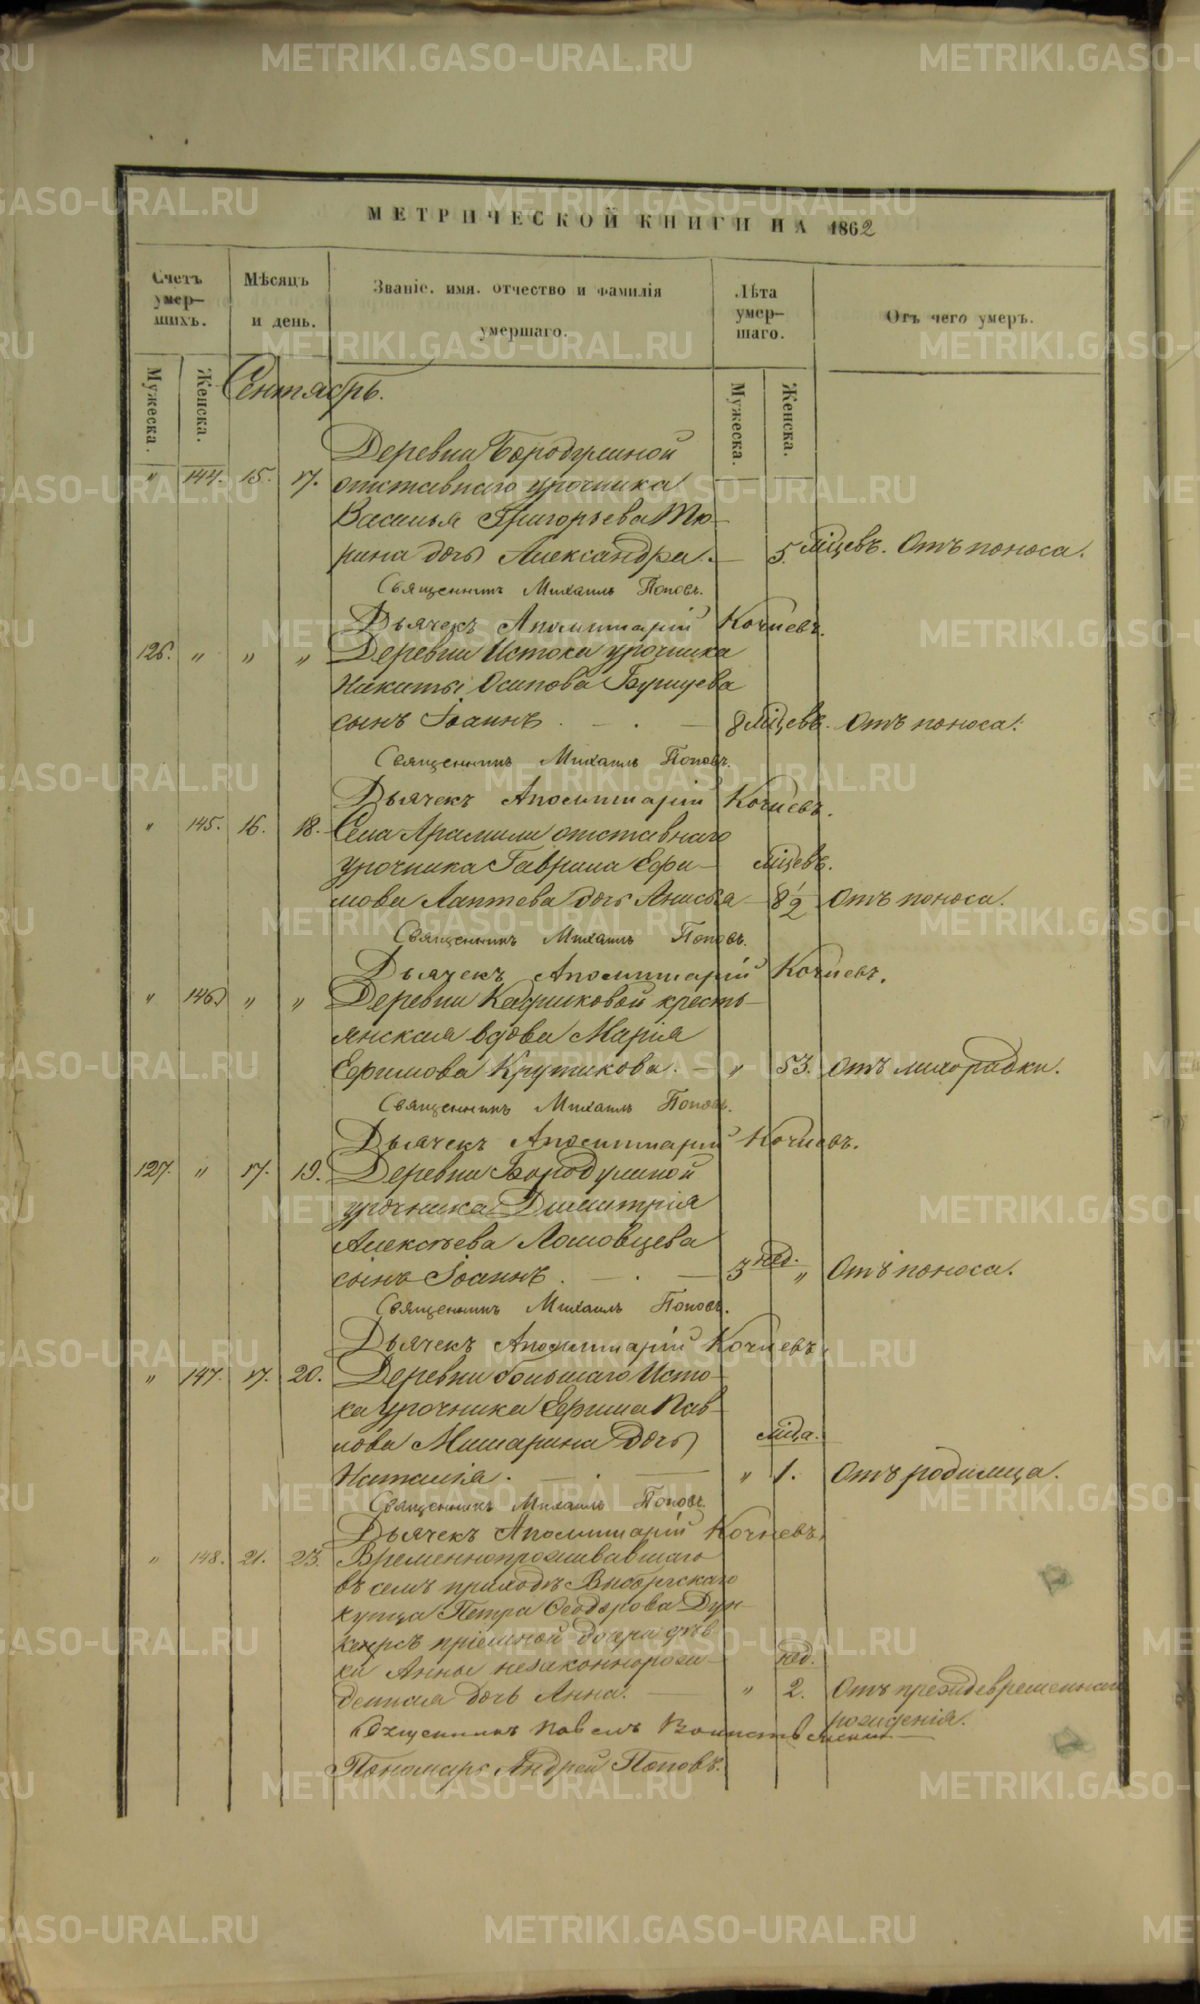 МЕТРИЧЕСКОЙ КНИГИ НА 1862
Счетъ умер-шихъ.
Мѣсяцъ и день.
Званіе, имя, отчество и фамилія умершаго.
Лѣта умер-шаго.
Отъ чего умеръ.
Мужеска. Женска.
Мужеска. Женска.
Сентябрь.
Деревни Бородулиной
" 144. 15. 17. отставнаго урочника
Василья Григорьева Тю-
рина дочь Александра. — 5. мѣцевъ. Отъ поноса.
Священникъ Михаилъ Поповъ.
Дьячекъ Аполлинарій Кочневъ.
126. " " " Деревни Истока урочника
Никиты Осипова
сынъ Іоаннъ . — . — 8 мѣцевъ. Отъ поноса.
Священникъ Михаилъ Поповъ.
Дьячекъ Аполлинарій Кочневъ.
" 145. 16. 18. Села Арамили отставнаго
урочника Гаврила Ефи- мѣцевъ.
мова Лаптева дочь Анисья — 8 1/2 Отъ поноса.
Священникъ Михаилъ Поповъ.
Дьячекъ Аполлинарій Кочневъ.
" 146. " " Деревни Кадниковой кресть-
янская вдова Марія
Ефимова Крутикова. — " 53. Отъ лихорадки.
Священникъ Михаилъ Поповъ.
Дьячекъ Аполлинарій Кочневъ.
127. " 17. 19. Деревни Бородулиной
урочника Димитрія
Алексѣева Ломовцева
сынъ Іоаннъ . — . — 3 нед. " Отъ поноса.
Священникъ Михаилъ Поповъ.
Дьячекъ Аполлинарій Кочневъ.
" 147. 17. 20. Деревни большаго Исто-
ка урочника Ефима Пав-
лова Мишарина дочь мѣца.
Наталія. — . — " 1. Отъ родимца.
Священникъ Михаилъ Поповъ.
Дьячекъ Аполлинарій Кочневъ.
" 148. 21. 23. Временнопроживавшаго
въ семъ приходѣ Выборгскаго
купца Петра Ѳеодорова
пріемной дочери дѣв-
ки Анны незаконнорож- нед.
денная дочь Анна. — " 2. Отъ преждевременнаго
рожденія.
Священникъ Павелъ
Пономарь Андрей Поповъ.
METRIKI.GASO-URAL.RU